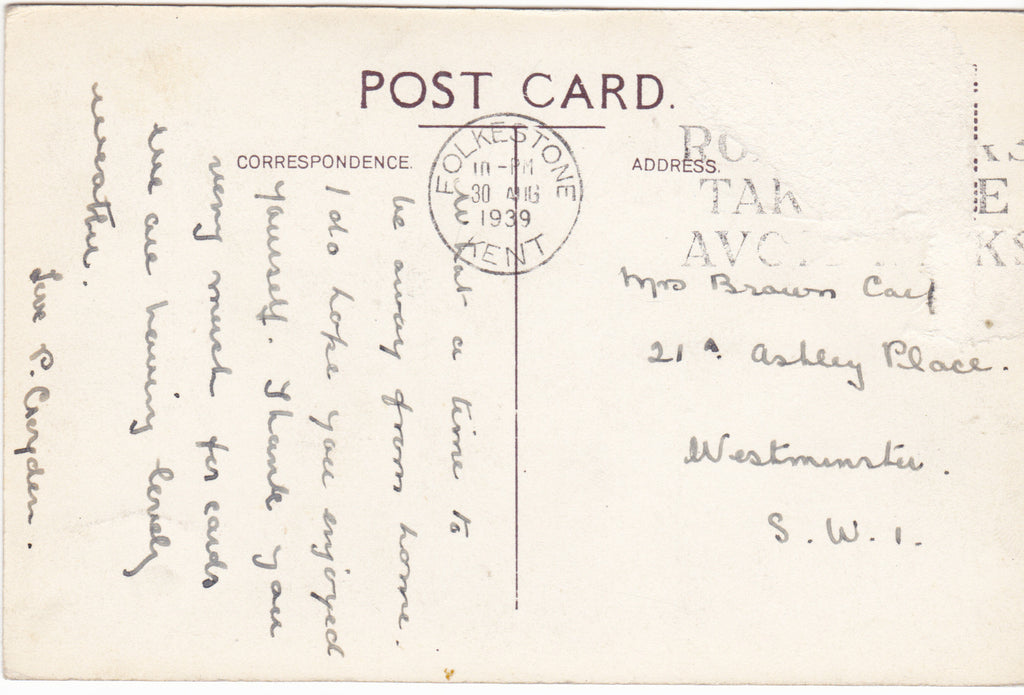 POST CARD.
CORRESPONDENCE.
ADDRESS.
FOLKESTONE
10-PM
30 AUG
1939
KENT
TAK E
what a time to
be away from home.
I do hope you enjoyed
yourself. Thank you
very much for cards
we are having lovely
weather.
Love P.
Mrs Brown
21A Ashley Place.
Westminster.
S.W.1.